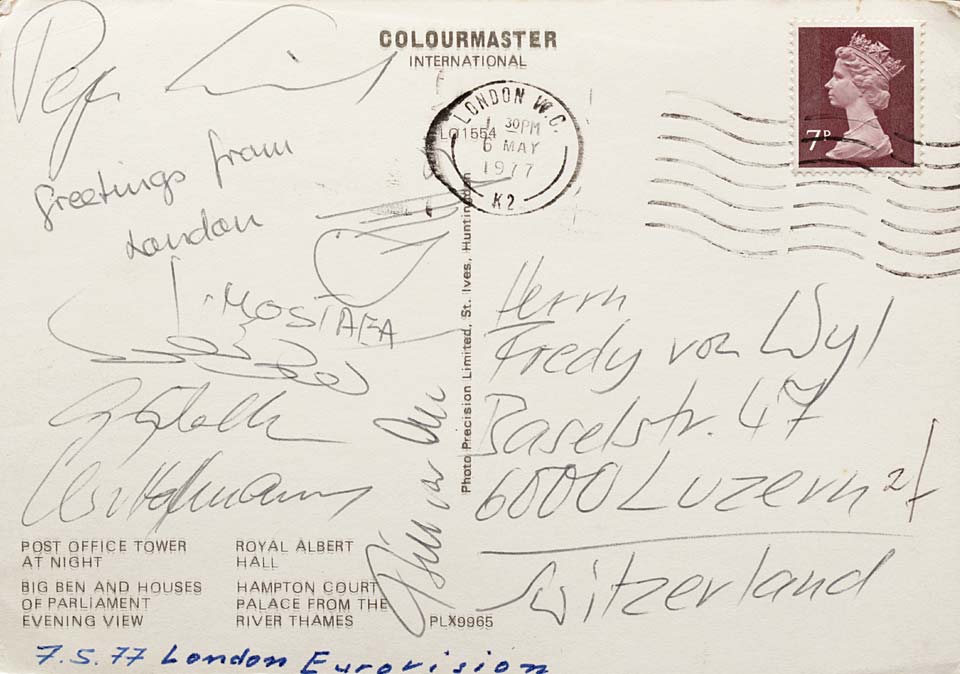 COLOURMASTER
INTERNATIONAL
LONDON W.C.
1 30PM
6 MAY
1977
K2
LO1554
7P
greetings from
London
MOSTAFA
Herrn
Fredy von Wyl
Baselstr. 47
6000 Luzern
Switzerland
Photo Precision Limited, St. Ives, Huntingdon
POST OFFICE TOWER
AT NIGHT
BIG BEN AND HOUSES
OF PARLIAMENT
EVENING VIEW
ROYAL ALBERT
HALL
HAMPTON COURT
PALACE FROM THE
RIVER THAMES
PLX9965
7.5.77 London Eurovision